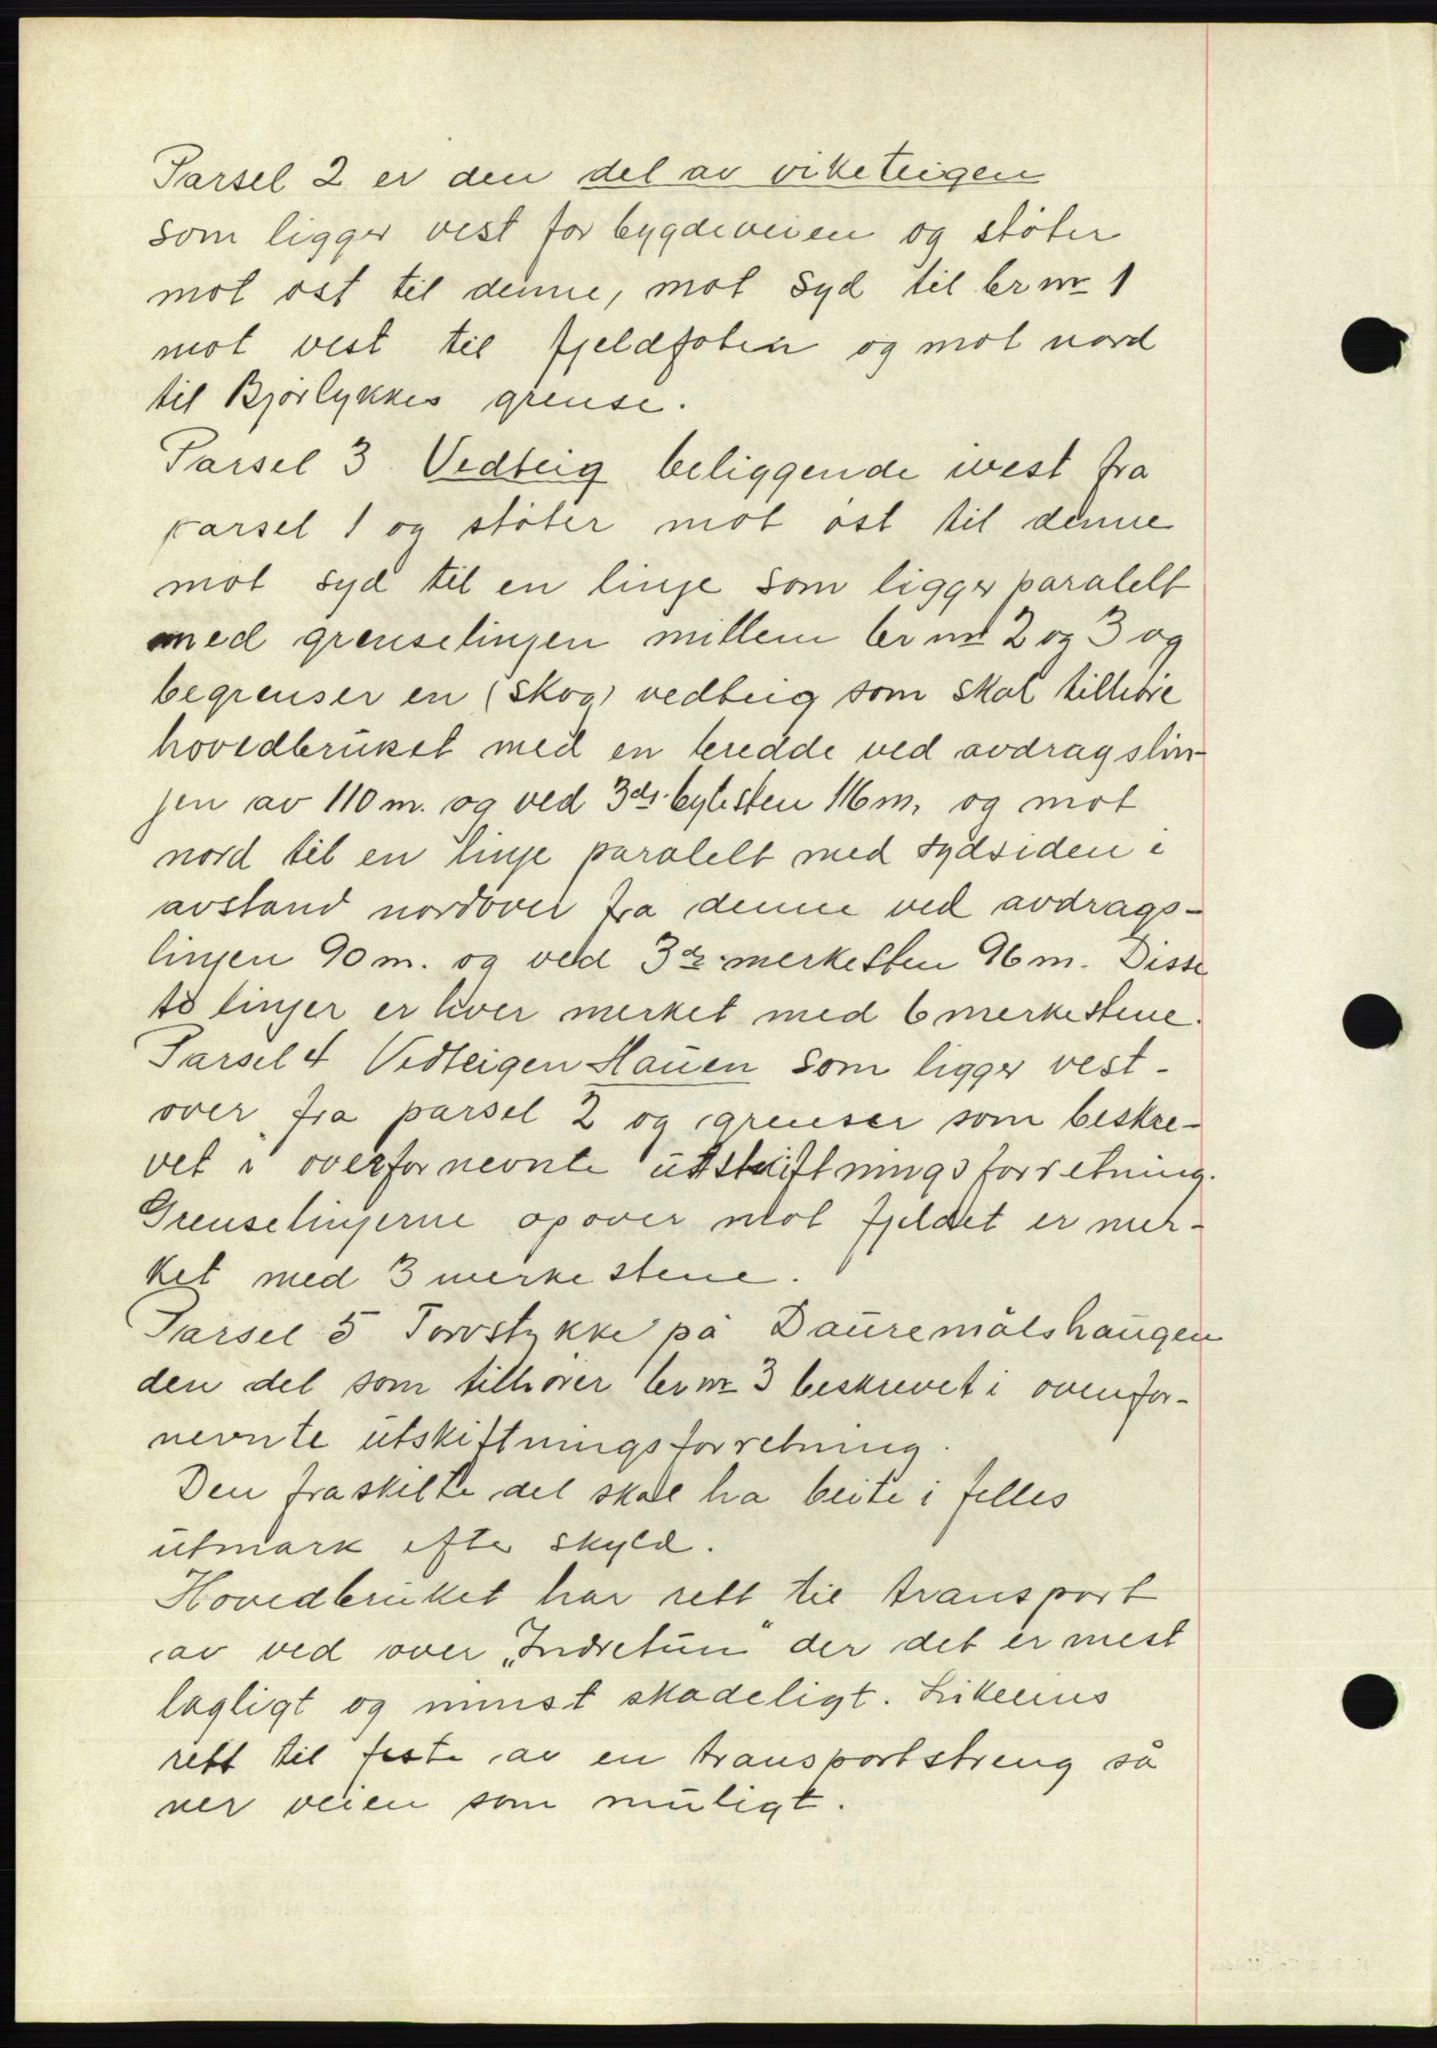 Parsel 2 er den del av viketeigen
som ligger vest for bygdeveien og støter
mot øst til denne, mot syd til br nr 1
mot vest til fjeldfoten og mot nord
til Bjørlykkes grense.
Parsel 3 Vedteig beliggende ivest fra
parsel 1 og støter mot øst til denne
mot syd til en linje som ligger paralelt
med grenselinjen millem br nr 2 og 3 og
begrenser en (skog) vedteig som skal tilhøre
hovedbruket med en bredde ved avdragslin-
jen av 110 m. og ved 3dj. bytesten 116 m. og mot
nord til en linje paralelt med sydsiden i
avstand nordover fra denne ved avdrags-
linjen 90 m. og ved 3dje merkesten 96 m. Disse
to linjer er hver merket med 6 merkestene.
Parsel 4 Vedteigen Hauen som ligger vest-
over fra parsel 2 og grenser som beskre-
vet i overfornevnte utskiftningsforretning.
Grenselinjerne opover mot fjeldet er mer-
ket med 3 merkestene.
Parsel 5 Torvstykke på Dauremålshaugen
den del som tilhører br nr 3 beskrevet i ovenfor-
nevnte utskiftningsforretning.
Den fraskilte del skal ha beite i felles
utmark efter skyld.
Hovedbruket har rett til transport
av ved over „Indretun" der det er mest
lagligt og minst skadeligt. Likeeins
rett til feste av en transportstreng så
ner veien som muligt.